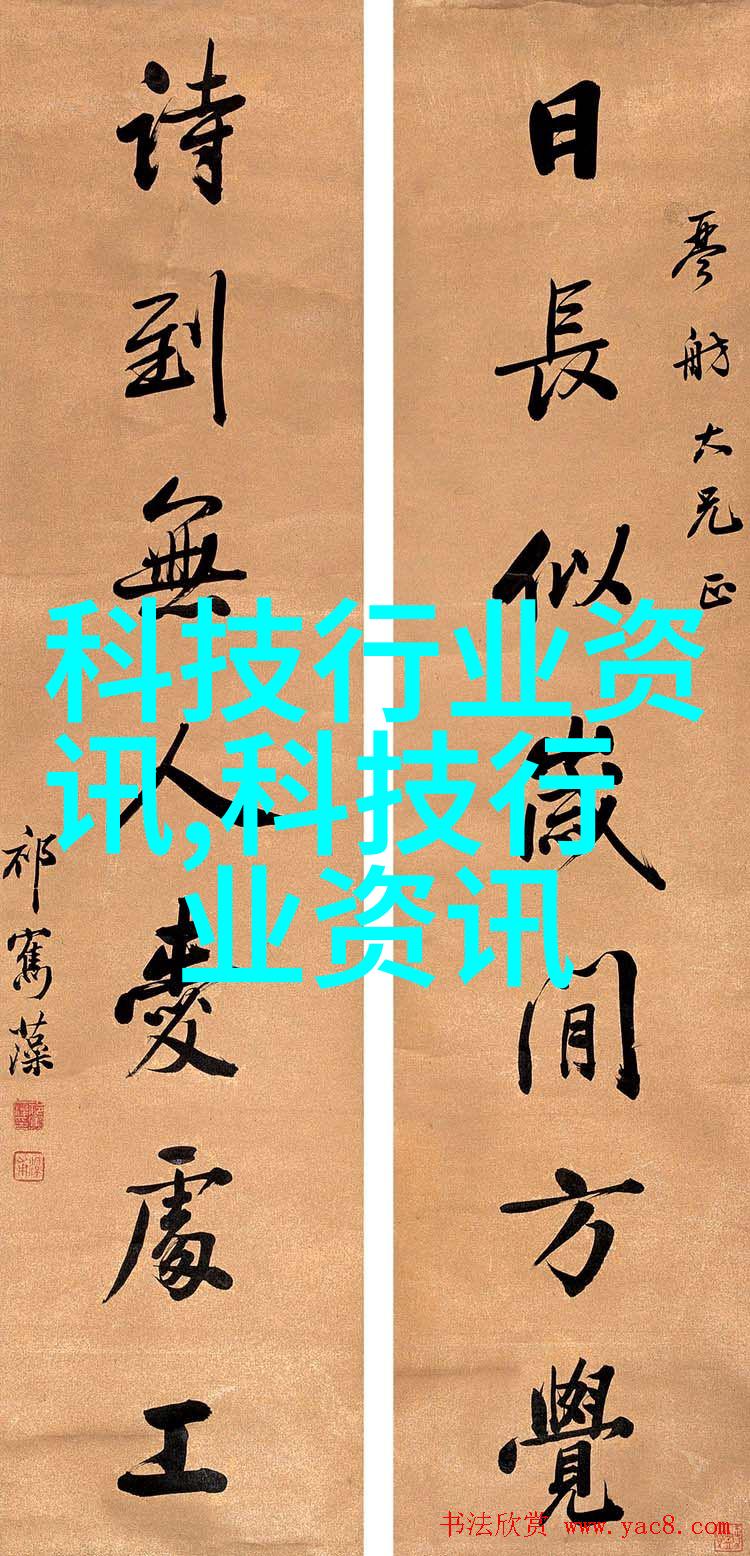 琴舫大兄正
日長似歲閒方覺
詩到無人愛處工
祁寯藻
科技行业资
讯,科技行
业资讯
书法欣赏 www.yac8.com